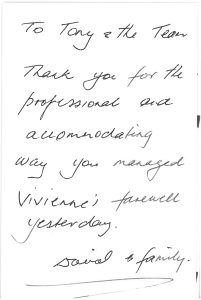 To Tony & the Team
Thank you for the
professional and
accommodating
way you managed
Vivienne's farewell
yesterday.
David & family.